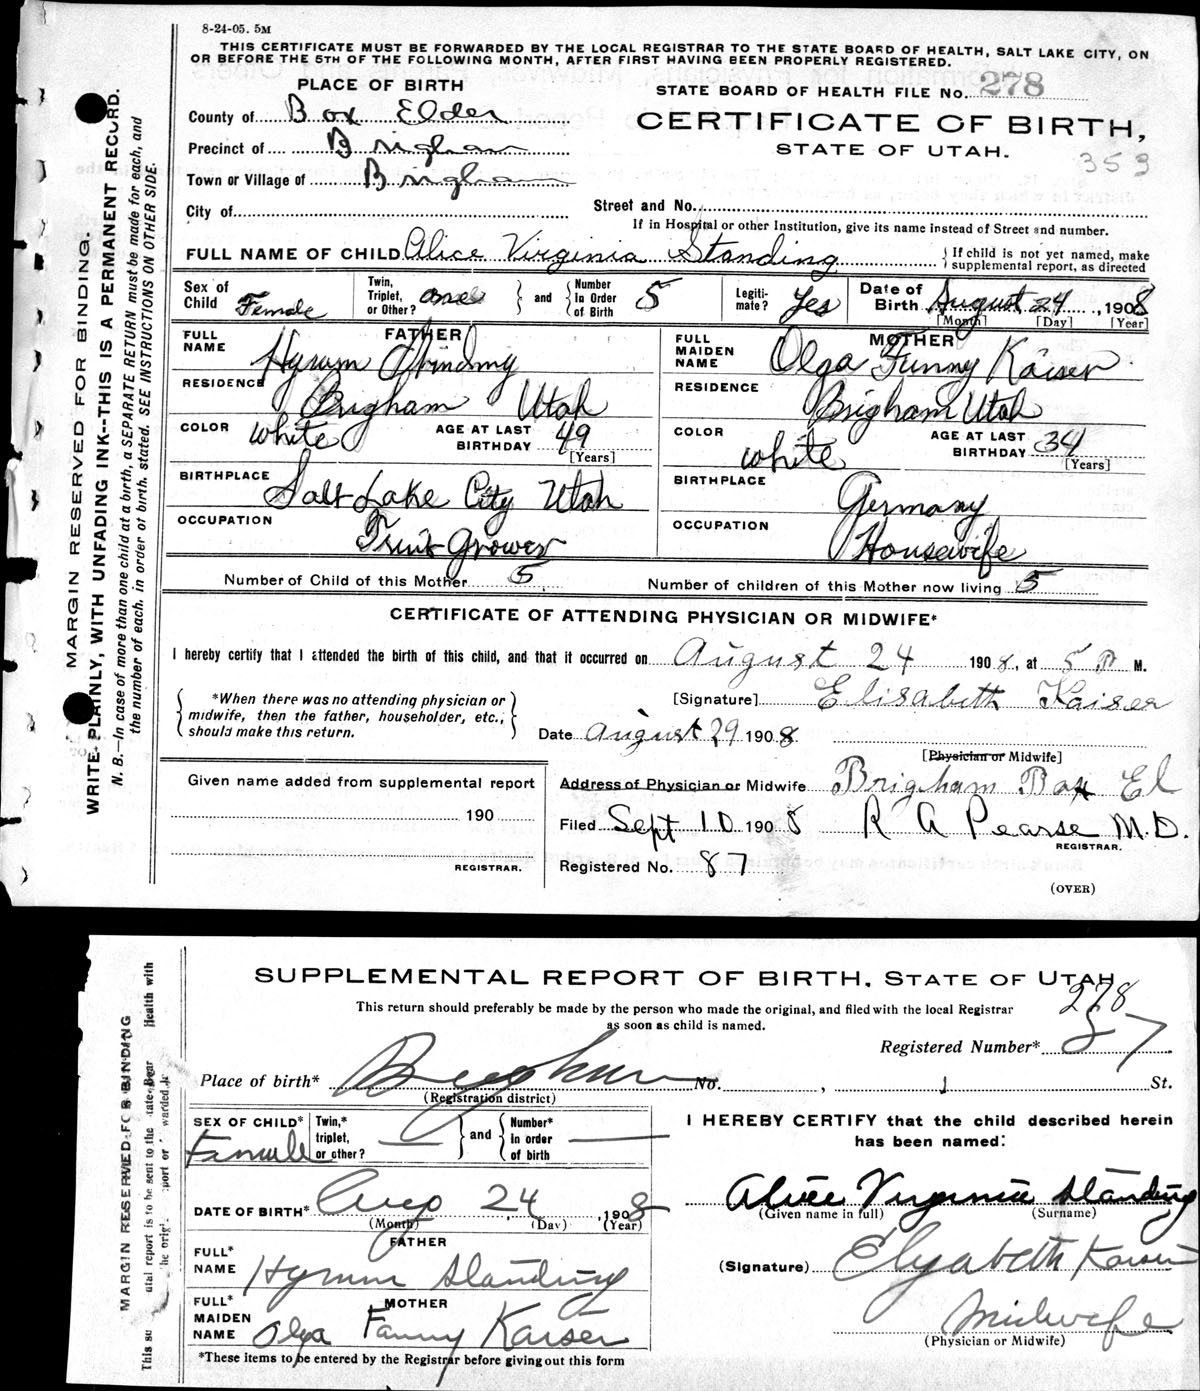 8-24-05. 5M
THIS CERTIFICATE MUST BE FORWARDED BY THE LOCAL REGISTRAR TO THE STATE BOARD OF HEALTH, SALT LAKE CITY, ON
OR BEFORE THE 5TH OF THE FOLLOWING MONTH, AFTER FIRST HAVING BEEN PROPERLY REGISTERED.
PLACE OF BIRTH
STATE BOARD OF HEALTH FILE No. 278
County of Box Elder
CERTIFICATE OF BIRTH,
Precinct of Brigham
STATE OF UTAH.
353
Town or Village of Brigham
City of
Street and No.
If in Hospital or other Institution, give its name instead of Street and number.
FULL NAME OF CHILD Alice Virginia Standing
{ If child is not yet named, make
supplemental report, as directed
Sex of Child Female
Twin, Triplet, or Other? one } and { Number In Order of Birth 5
Legiti- mate? Yes
Date of Birth August 24, 1908
[Month] [Day] [Year]
FATHER
FULL NAME Hyrum Standing
RESIDENCE Brigham Utah
COLOR white AGE AT LAST BIRTHDAY 49
[Years]
BIRTHPLACE Salt Lake City Utah
OCCUPATION Fruit Grower
MOTHER
FULL MAIDEN NAME Olga Fanny Kaiser
RESIDENCE Brigham Utah
COLOR white AGE AT LAST BIRTHDAY 34
[Years]
BIRTHPLACE Germany
OCCUPATION Housewife
Number of Child of this Mother 5 Number of children of this Mother now living 5
CERTIFICATE OF ATTENDING PHYSICIAN OR MIDWIFE*
I hereby certify that I attended the birth of this child, and that it occurred on August 24 1908, at 5 P M.
{ *When there was no attending physician or
midwife, then the father, householder, etc.,
should make this return. }
[Signature] Elisabeth Kaiser
Date August 29 1908
[Physician or Midwife]
Given name added from supplemental report
190
REGISTRAR.
Address of Physician or Midwife Brigham Box El
Filed Sept 10 1908 R A Pearse M.D.
REGISTRAR.
Registered No. 87
(OVER)
MARGIN RESERVED FOR BINDING.
WRITE PLAINLY, WITH UNFADING INK--THIS IS A PERMANENT RECORD.
N. B.—In case of more than one child at a birth, a SEPARATE RETURN must be made for each, and
the number of each, in order of birth, stated. SEE INSTRUCTIONS ON OTHER SIDE.
SUPPLEMENTAL REPORT OF BIRTH, STATE OF UTAH
This return should preferably be made by the person who made the original, and filed with the local Registrar
as soon as child is named.
278
Registered Number* 87
Place of birth* Brigham No. , St.
(Registration district)
SEX OF CHILD* Female
Twin,* triplet, or other? } and { Number* in order of birth
DATE OF BIRTH* Aug 24, 1908
(Month) (Day) (Year)
FATHER
FULL* NAME Hyrum Standing
MOTHER
FULL* MAIDEN NAME Olga Fanny Kaiser
*These items to be entered by the Registrar before giving out this form
I HEREBY CERTIFY that the child described herein
has been named:
Alice Virginia Standing
(Given name in full) (Surname)
(Signature) Elyabeth Kaiser
Midwife
(Physician or Midwife)
MARGIN RESERVED FOR BINDING